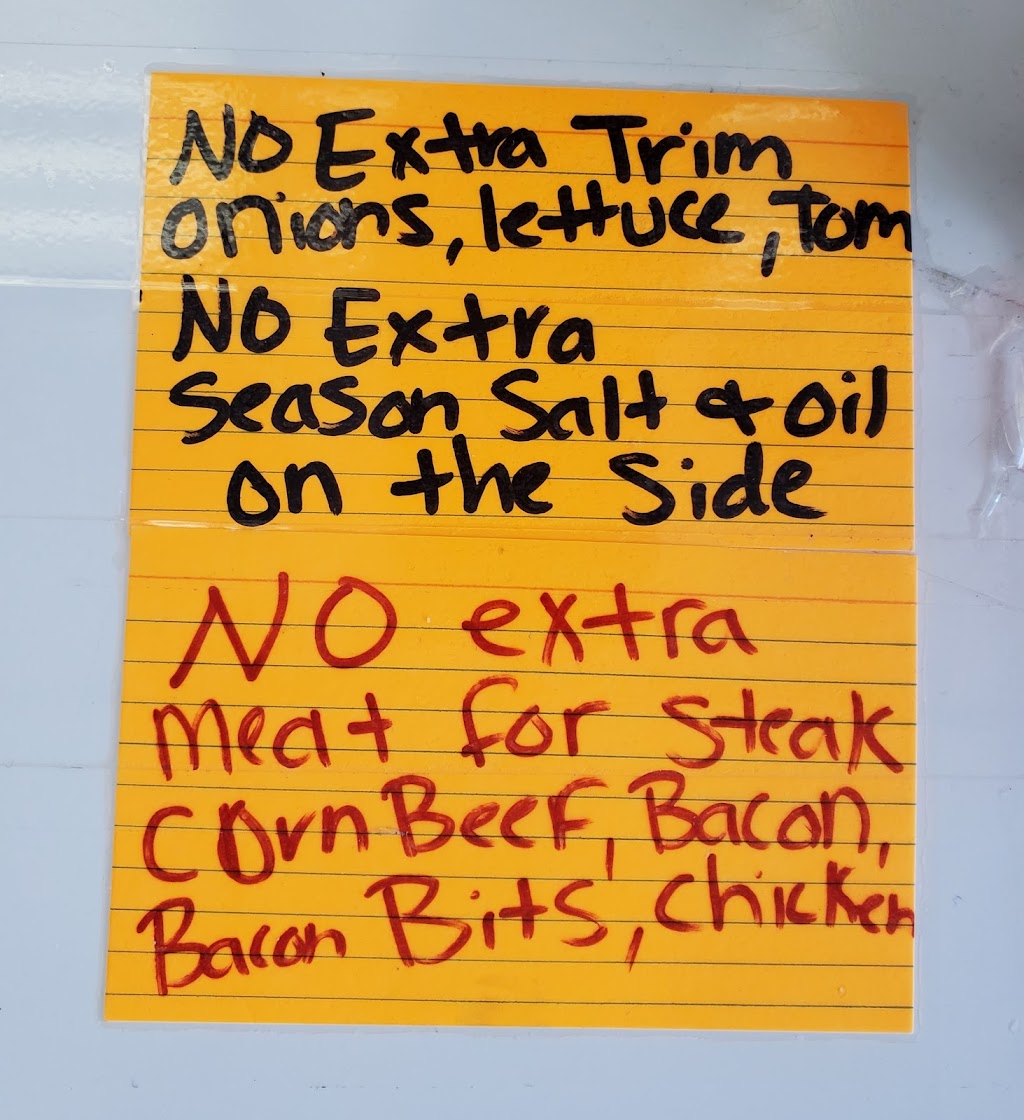 NO Extra Trim
onions, lettuce, Tom
NO Extra
Season Salt & oil
on the Side
NO extra
meat for steak
Corn Beef, Bacon,
Bacon Bits, chicken